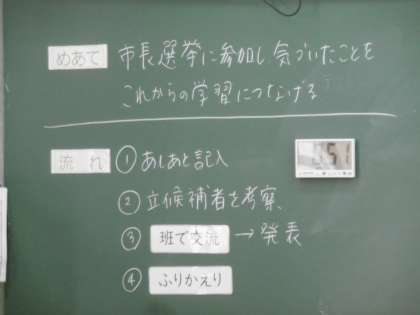 めあて 市長選挙に参加し気づいたことを
これからの学習につなげる
流れ ①あしあと記入
②立候補者を考察、
③班で交流→発表
④ふりかえり